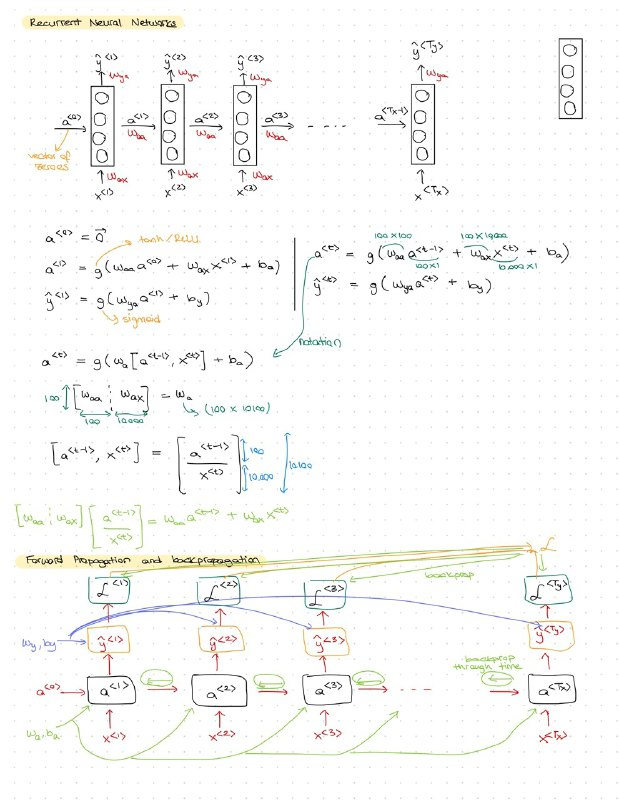 Recurrent Neural Networks
ŷ<1> ŷ<2> ŷ<3> ŷ<Ty>
Wya Wya Wya Wya
a<0> a<1> a<2> a<3> a<Tx-1>
Waa Waa Waa
vector of zeroes
Wax Wax Wax
x<1> x<2> x<3> x<Tx>
a<0> = 0⃗
tanh / ReLU
a<1> = g(Waa a<0> + Wax x<1> + ba)
ŷ<1> = g(Wya a<1> + by)
sigmoid
100 x 100 100 x 10,000
a<t> = g(Waa a<t-1> + Wax x<t> + ba)
100 x 1 10,000 x 1
ŷ<t> = g(Wya a<t> + by)
notation
a<t> = g(Wa [a<t-1>, x<t>] + ba)
100 [Waa ¦ Wax] = Wa
100 10,000 (100 x 10100)
[a<t-1>, x<t>] = [a<t-1> / x<t>] 100 10,000 10,100
[Waa ¦ Wax] [a<t-1> / x<t>] = Waa a<t-1> + Wax x<t>
Forward Propagation and backpropagation
L
L<1> L<2> L<3> backprop L<Ty>
Wy, by ŷ<1> ŷ<2> ŷ<3> ŷ<Ty>
backprop through time
a<0> a<1> a<2> a<3> - - - a<Tx>
Wa, ba
x<1> x<2> x<3> x<Tx>